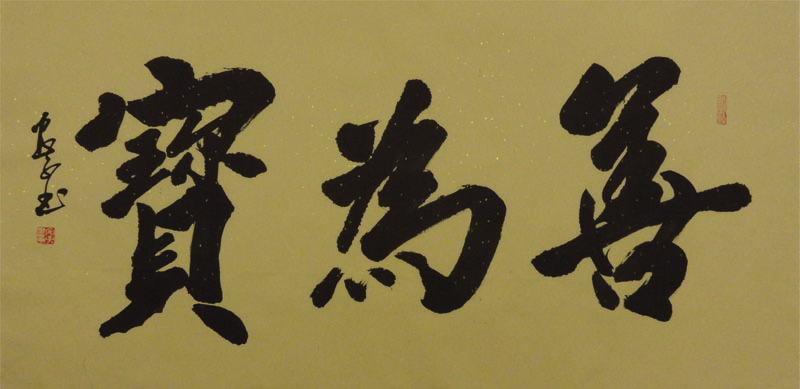 善為寶